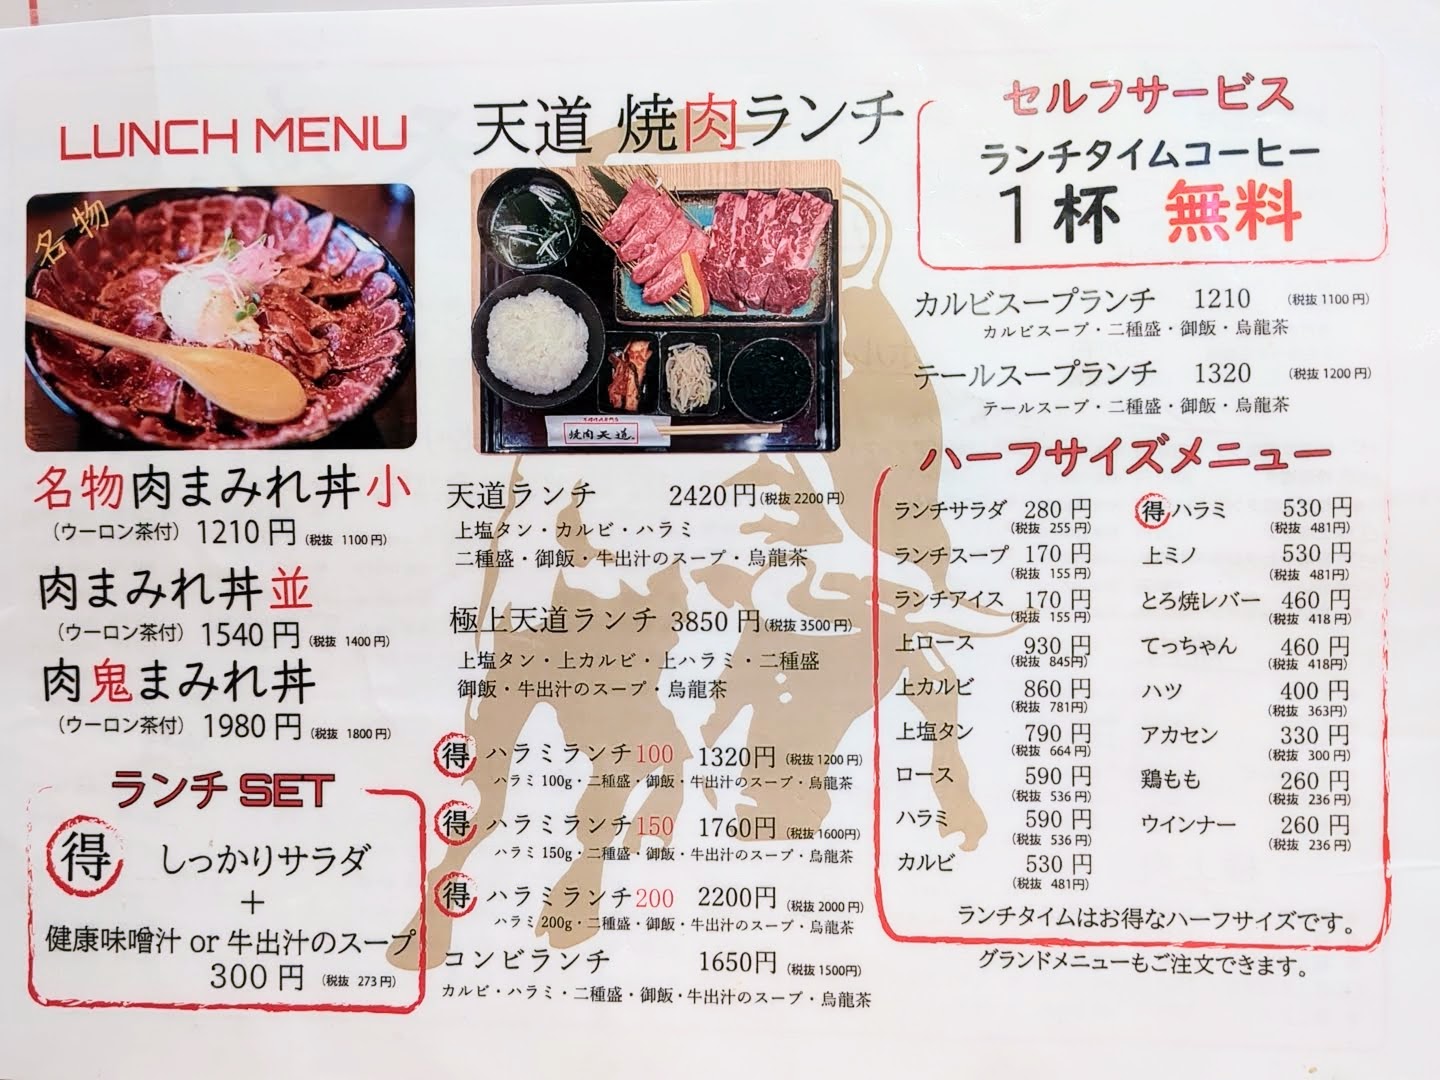 LUNCH MENU
名物
名物肉まみれ丼小
（ウーロン茶付） 1210 円 (税抜 1100 円)
肉まみれ丼並
（ウーロン茶付） 1540 円 (税抜 1400 円)
肉鬼まみれ丼
（ウーロン茶付） 1980 円 (税抜 1800 円)
ランチ SET
得 しっかりサラダ
＋
健康味噌汁 or 牛出汁のスープ
300 円 (税抜 273 円)
天道 焼肉ランチ
焼肉天道
天道ランチ 2420 円(税抜 2200 円)
上塩タン・カルビ・ハラミ
二種盛・御飯・牛出汁のスープ・烏龍茶
極上天道ランチ 3850 円(税抜 3500 円)
上塩タン・上カルビ・上ハラミ・二種盛
御飯・牛出汁のスープ・烏龍茶
得 ハラミランチ100 1320円 (税抜 1200 円)
ハラミ 100g・二種盛・御飯・牛出汁のスープ・烏龍茶
得 ハラミランチ150 1760円 (税抜 1600円)
ハラミ 150g・二種盛・御飯・牛出汁のスープ・烏龍茶
得 ハラミランチ200 2200円 (税抜 2000 円)
ハラミ 200g・二種盛・御飯・牛出汁のスープ・烏龍茶
コンビランチ 1650円 (税抜 1500円)
カルビ・ハラミ・二種盛・御飯・牛出汁のスープ・烏龍茶
セルフサービス
ランチタイムコーヒー
１杯 無料
カルビスープランチ 1210 (税抜 1100 円)
カルビスープ・二種盛・御飯・烏龍茶
テールスープランチ 1320 (税抜 1200 円)
テールスープ・二種盛・御飯・烏龍茶
ハーフサイズメニュー
ランチサラダ 280 円
(税抜 255 円)
ランチスープ 170 円
(税抜 155 円)
ランチアイス 170 円
(税抜 155 円)
上ロース 930 円
(税抜 845円)
上カルビ 860 円
(税抜 781円)
上塩タン 790 円
(税抜 664 円)
ロース 590 円
(税抜 536 円)
ハラミ 590 円
(税抜 536 円)
カルビ 530 円
(税抜 481円)
得 ハラミ 530 円
(税抜 481円)
上ミノ 530 円
(税抜 481円)
とろ焼レバー 460 円
(税抜 418 円)
てっちゃん 460 円
(税抜 418円)
ハツ 400 円
(税抜 363円)
アカセン 330 円
(税抜 300 円)
鶏もも 260 円
(税抜 236 円)
ウインナー 260 円
(税抜 236 円)
ランチタイムはお得なハーフサイズです。
グランドメニューもご注文できます。